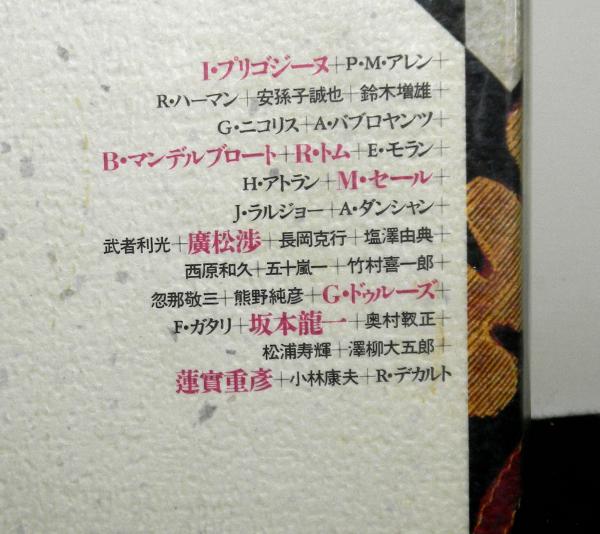 I・プリゴジーヌ+P・M・アレン+
R・ハーマン+安孫子誠也+鈴木増雄+
G・ニコリス+A・バブロヤンツ+
B・マンデルブロート+R・トム+E・モラン+
H・アトラン+M・セール+
J・ラルジョー+A・ダンシャン+
武者利光+廣松渉+長岡克行+塩澤由典+
西原和久+五十嵐一+竹村喜一郎+
忽那敬三+熊野純彦+G・ドゥルーズ+
F・ガタリ+坂本龍一+奥村靫正+
松浦寿輝+澤柳大五郎+
蓮實重彦+小林康夫+R・デカルト